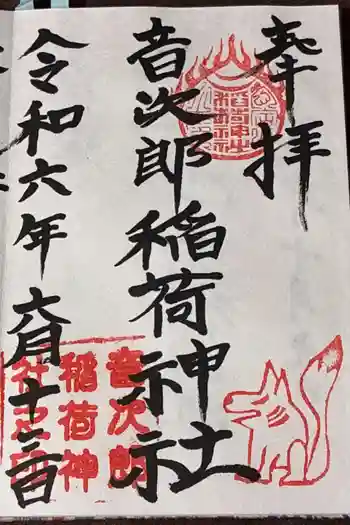 奉拝
音次郎稲荷神社
令和六年六月十三日
音次郎
稲荷神
社之印